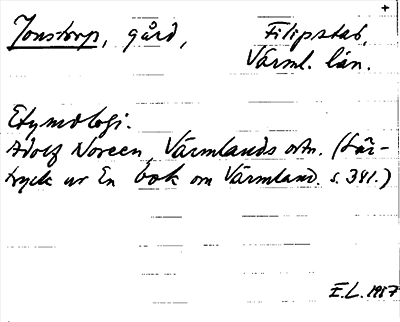 Jonstorp, gård, Filipstad,
Värml. län.
Etymologi.
Adolf Noreen, Värmlands ortn. (Sär-
tryck ur En bok om Värmland. s. 341.)
E.L. 1957